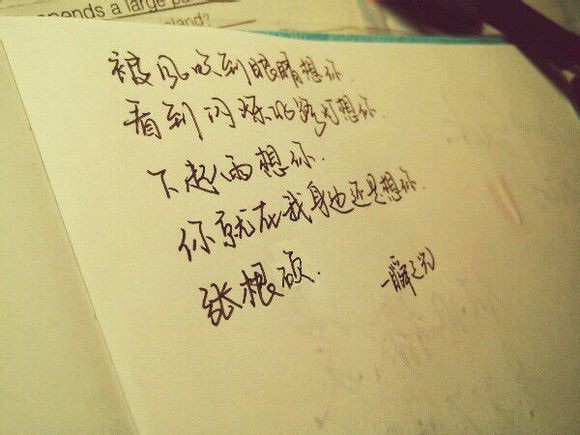 spends a large pa
island?
被风吹到眼睛想你.
看到闪烁的路灯想你.
下起雨想你.
你就在我身边还是想你.
张根硕.